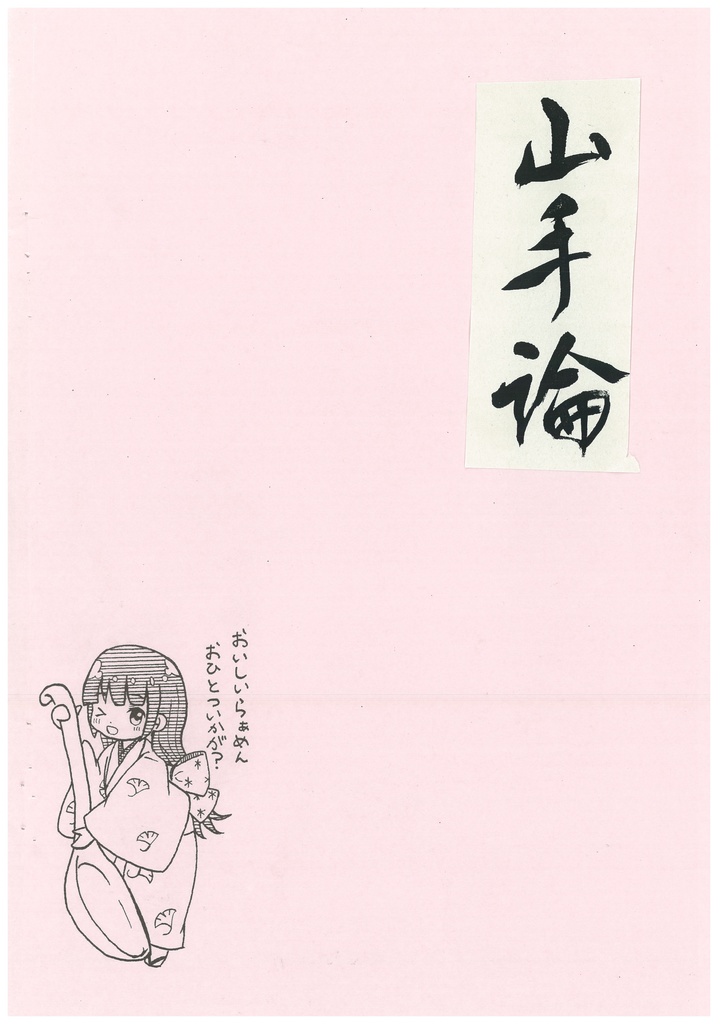 山手論
おいしいらぁめん
おひとついかが?